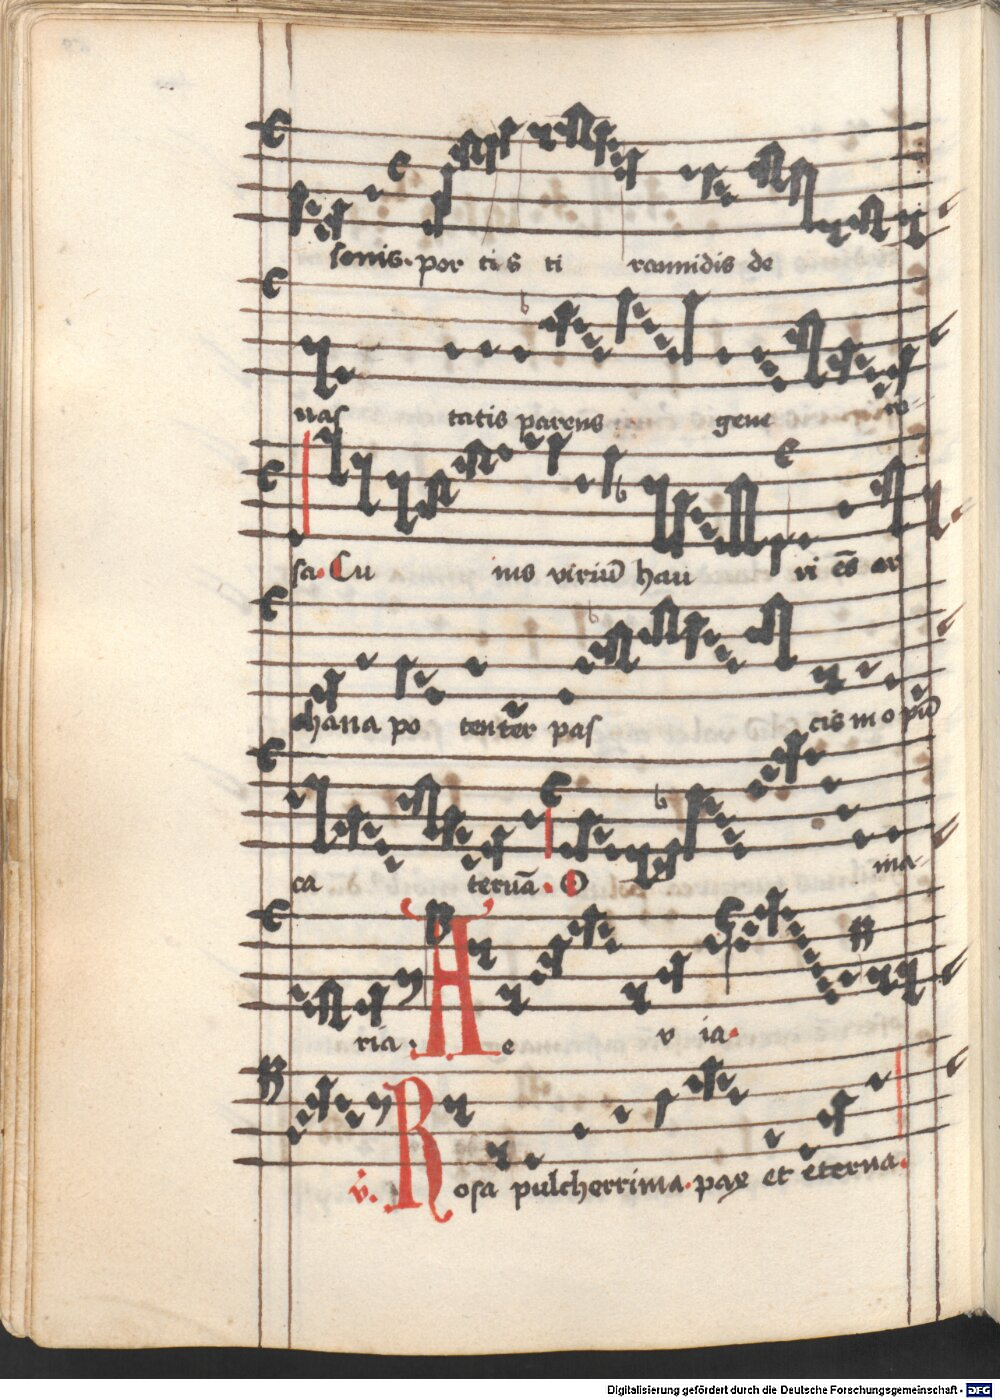 sonis. por tis ti rannidis de
nas tatis parens gene ro
sa. Cu ius viriū hau ri ēs ar
chana po tenter pas cis inopiū
ca teruā. O ma
ria. A e v ia.
v̄. Rosa pulcherrima. pax et eterna.
Digitalisierung gefördert durch die Deutsche Forschungsgemeinschaft - DFG